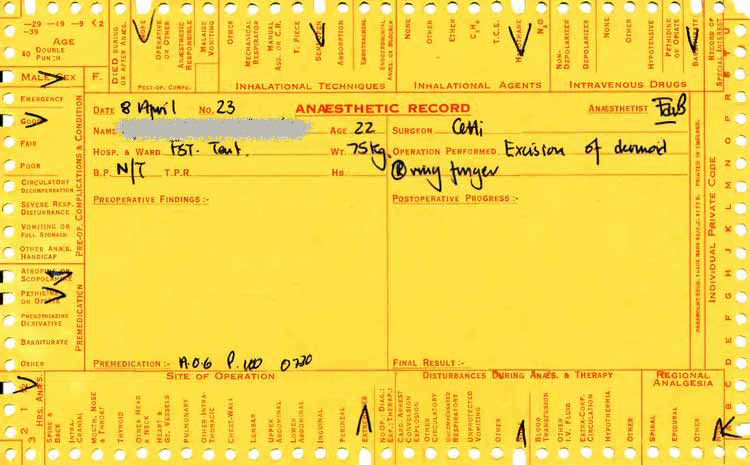 -29 -19 -9 <2
-39
AGE
40 DOUBLE PUNCH
MALE SEX F.
DIED DURING OR AFTER ANÆS.
NONE
OPERATIVE OR OTHER
ANÆSTHETIC RESPONSIBLE
MALAISE VOMITING
OTHER
POST-OP. COMPS.
MECHANICAL RESPIRATOR
MANUAL ASS. OR C.R.
T. PIECE
ABSORPTION
ENDOTRACHEAL
INHALATIONAL TECHNIQUES
NONE
OTHER
ETHER
C₃H₆
T.C.E.
N₂O
INHALATIONAL AGENTS
NON-DEPOLARIZER
DEPOLARIZER
NONE
OTHER
HYPOTENSIVE
PETHIDINE OR OPIATE
BARBITURATE
INTRAVENOUS DRUGS
RECORD OF SPECIAL INTEREST
EMERGENCY
GOOD
FAIR
POOR
CIRCULATORY DECOMPENSATION
SEVERE RESP. DISTURBANCE
VOMITING OR FULL STOMACH
OTHER ANÆS. HANDICAP
PRE-OP. COMPLICATIONS & CONDITION
ATROPINE OR SCOPOLAMINE
PETHIDINE OR OPIATE
PHENOTHIAZINE DERIVATIVE
BARBITURATE
OTHER
PREMEDICATION
DATE 8 April No. 23 ANÆSTHETIC RECORD ANÆSTHETIST
NAME AGE 22 SURGEON
HOSP. & WARD FST. Tent. WT. 75kg. OPERATION PERFORMED Excision of dermoid
B.P. N/T T.P.R. HB. (R) ring finger
PREOPERATIVE FINDINGS :- POSTOPERATIVE PROGRESS :-
PREMEDICATION :- A.0.6 P. 100 0730 FINAL RESULT :-
PRINTED IN ENGLAND.
INDIVIDUAL PRIVATE CODE
3 2 1
HRS. ANÆS.
SITE OF OPERATION
SPINE & BACK
INTRA-CRANIAL
MOUTH, NOSE & THROAT
THYROID
OTHER HEAD & NECK
HEART & GT. VESSELS
PULMONARY
OTHER INTRA-THORACIC
CHEST-WALL
LUMBAR
UPPER ABDOMINAL
LOWER ABDOMINAL
INGUINAL
PERINEAL
EXTREMITIES
DISTURBANCES DURING ANÆS. & THERAPY
CARD. ARREST
CONVULSION
EXPLOSION
OTHER CIRCULATORY
RESPIRATORY
UNPROTECTED VOMITING
OTHER
BLOOD TRANSFUSION
OTHER I.V. FLUID
EXTRA-CORP. CIRCULATION
HYPOTHERMIA
OTHER
REGIONAL ANALGESIA
SPIRAL
EPIDURAL
OTHER